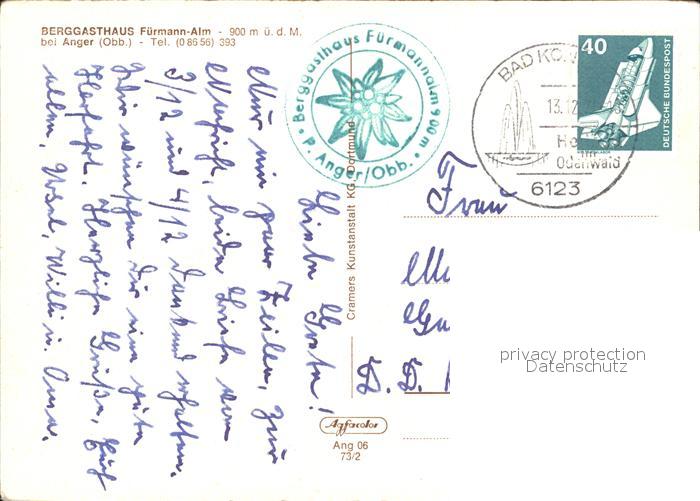 BERGGASTHAUS Fürmann-Alm - 900 m ü. d. M.
bei Anger (Obb.) - Tel. (0 86 56) 393
Berggasthaus Fürmannalm 900 m
P. Anger/Obb.
BAD KÖ
13.12
Odenwald
6123
40
DEUTSCHE BUNDESPOST
Liebe Greta!
Nur ein paar Zeilen, zur
Nachricht, beide Briefe vom
3/12 und 4/12 dankend erhalten.
Wir wünschen Dir eine gute
Herfahrt. Herzliche Grüße,
Willi u. Oma.
Cramers Kunstanstalt KG, Dortmund
Frau
D. D.
Agfacolor
Ang 06
73/2
privacy protection
Datenschutz